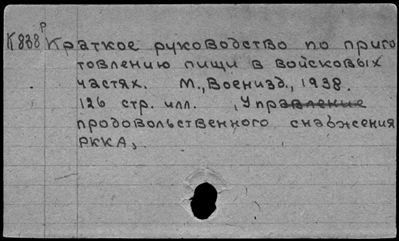 р
К838 Краткое руководство по приго
товлению пищи в войсковых
частях. М., Воениздат., 1938.
126 стр. илл. , Управление
продовольственного снабжения
РККА,